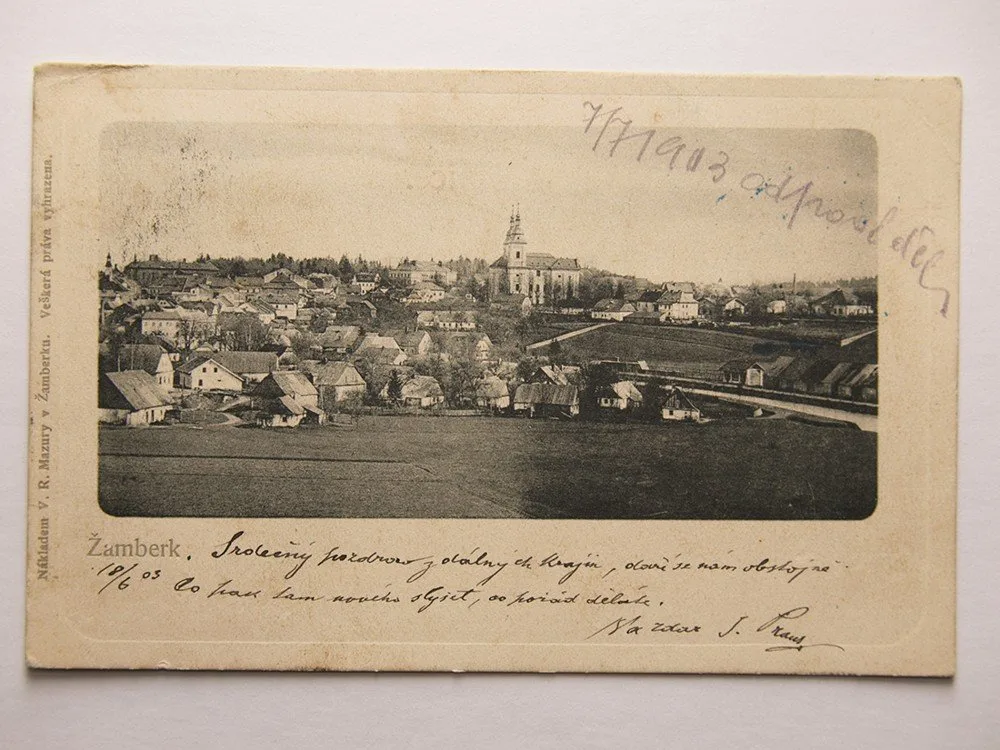 7/7 1903 odpověděl
Nákladem V. R. Mazury v Žamberku. Veškerá práva vyhrazena.
Žamberk.
Srdečný pozdrav z dálných krajin, daří se nám obstojně
18/6 03 Co pak tam nového slyšet, co pořád děláte.
Na zdar J. Praus